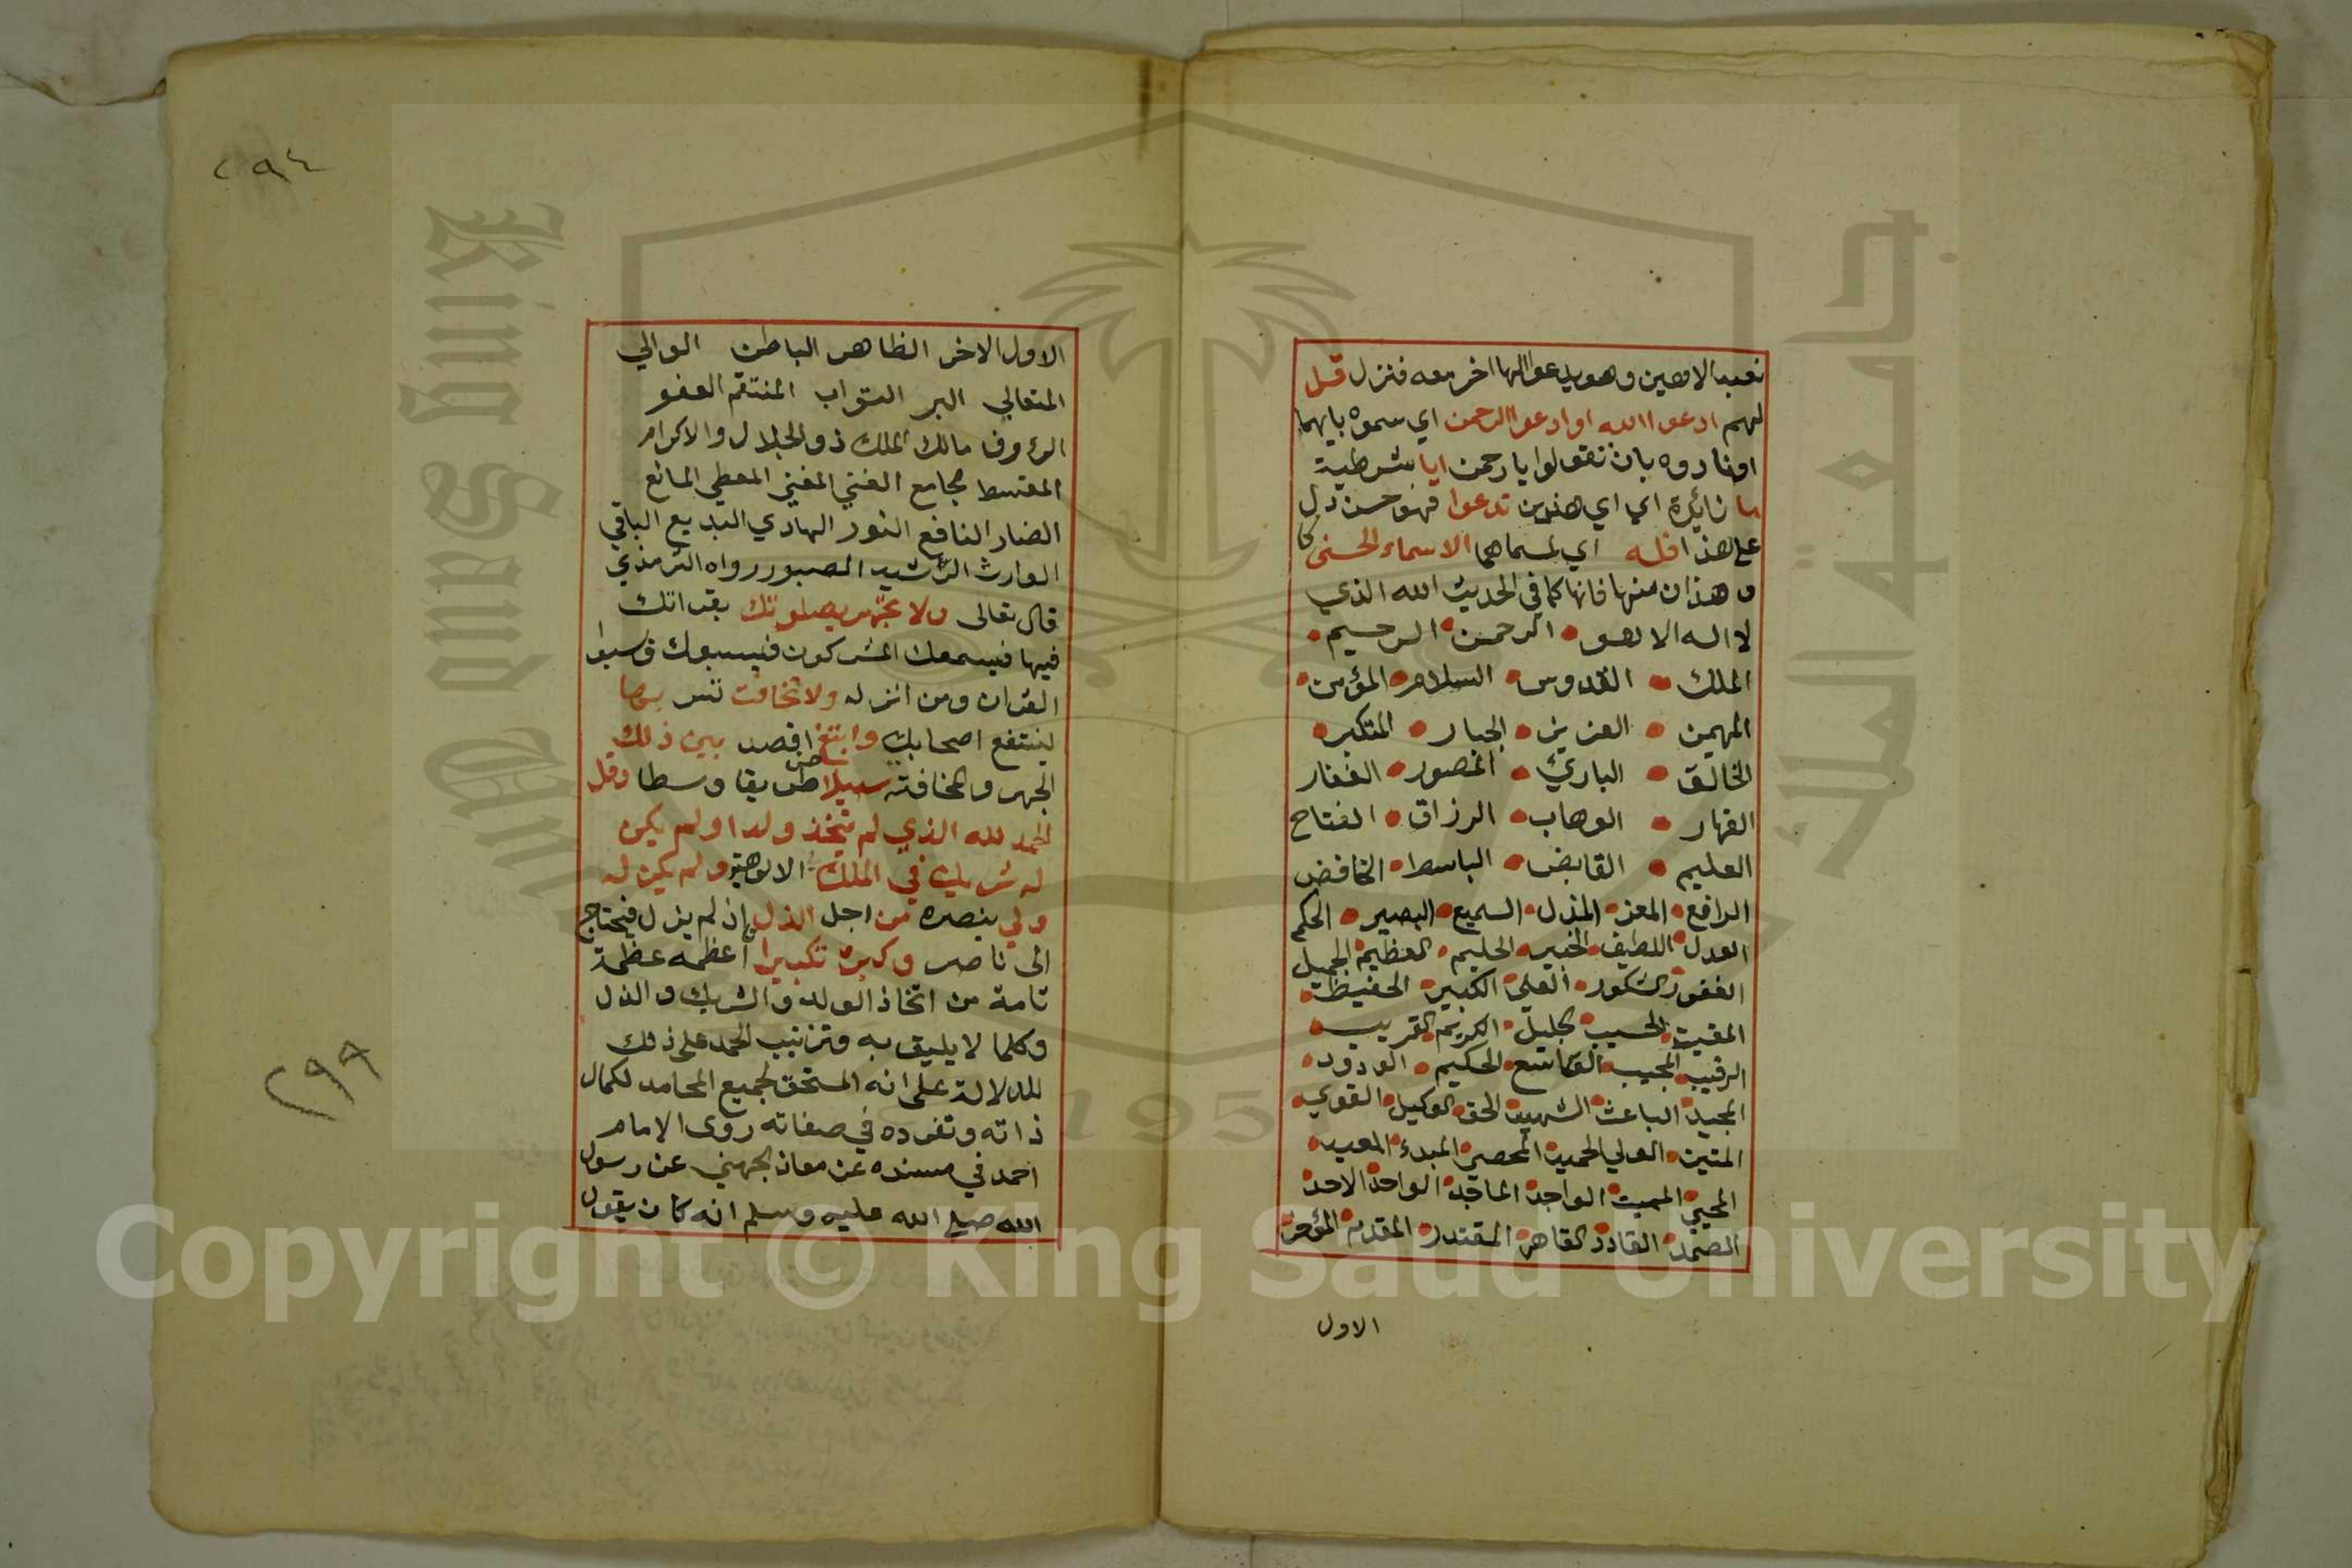 نعبد الاهين وهو يدعو الها اخر معه فنزل قل
لهم ادعوا الله او ادعوا الرحمن اي سموه بايهما
او نادوه بان تقولوا يا رحمن ايا شرطية
ما زائدة اي اي هذين تدعوا فهو حسن دل
على هذا فله اي لمسماهما الاسماء الحسنى
وهذان منها فانها كما في الحديث الله الذي
لا اله الا هو الرحمن الرحيم
الملك القدوس السلام المؤمن
المهيمن العزيز الجبار المتكبر
الخالق البارئ المصور الغفار
القهار الوهاب الرزاق الفتاح
العليم القابض الباسط الخافض
الرافع المعز المذل السميع البصير الحكم
العدل اللطيف الخبير الحليم العظيم الجميل
الغفور الشكور العلي الكبير الحفيظ
المقيت الحسيب الجليل الكريم القريب
الرقيب المجيب الواسع الحكيم الودود
المجيد الباعث الشهيد الحق الوكيل القوي
المتين الولي الحميد المحصي المبدء المعيد
المحيي المميت الواجد الماجد الواحد الاحد
الصمد القادر القاهر المقتدر المقدم المؤخر
الاول
الاول الاخر الظاهر الباطن الوالي
المتعالي البر التواب المنتقم العفو
الرؤوف مالك الملك ذو الجلال والاكرام
المقسط الجامع الغني المغني المعطي المانع
الضار النافع النور الهادي البديع الباقي
الوارث الرشيد الصبور رواه الترمذي
قال تعالى ولا تجهر بصلوتك بقراتك
فيها فيسمعك المشركون فيسبوك ويسبوا
القران ومن انزله ولا تخافت تسر بها
لينتفع اصحابك وابتغ اقصد بين ذلك
الجهر والمخافتة سبيلا طريقا وسطا وقل
الحمد لله الذي لم يتخذ ولدا ولم يكن
له شريك في الملك الالوهية ولم يكن له
ولي ينصره من اجل الذل اذ لم يزل فيحتاج
الى ناصر وكبره تكبيرا اعظمه عظمة
تامة من اتخاذ الولد والشريك والذل
وكلما لا يليق به وترتيب الحمد على ذلك
للدلالة على انه المستحق لجميع المحامد لكمال
ذاته وتفرده في صفاته روى الامام
احمد في مسنده عن معاذ الجهني عن رسول
الله صلى الله عليه وسلم انه كان يقول
٢٩٤
٢٩٩
King Saud University
جامعة الملك
1957
Copyright © King Saud University